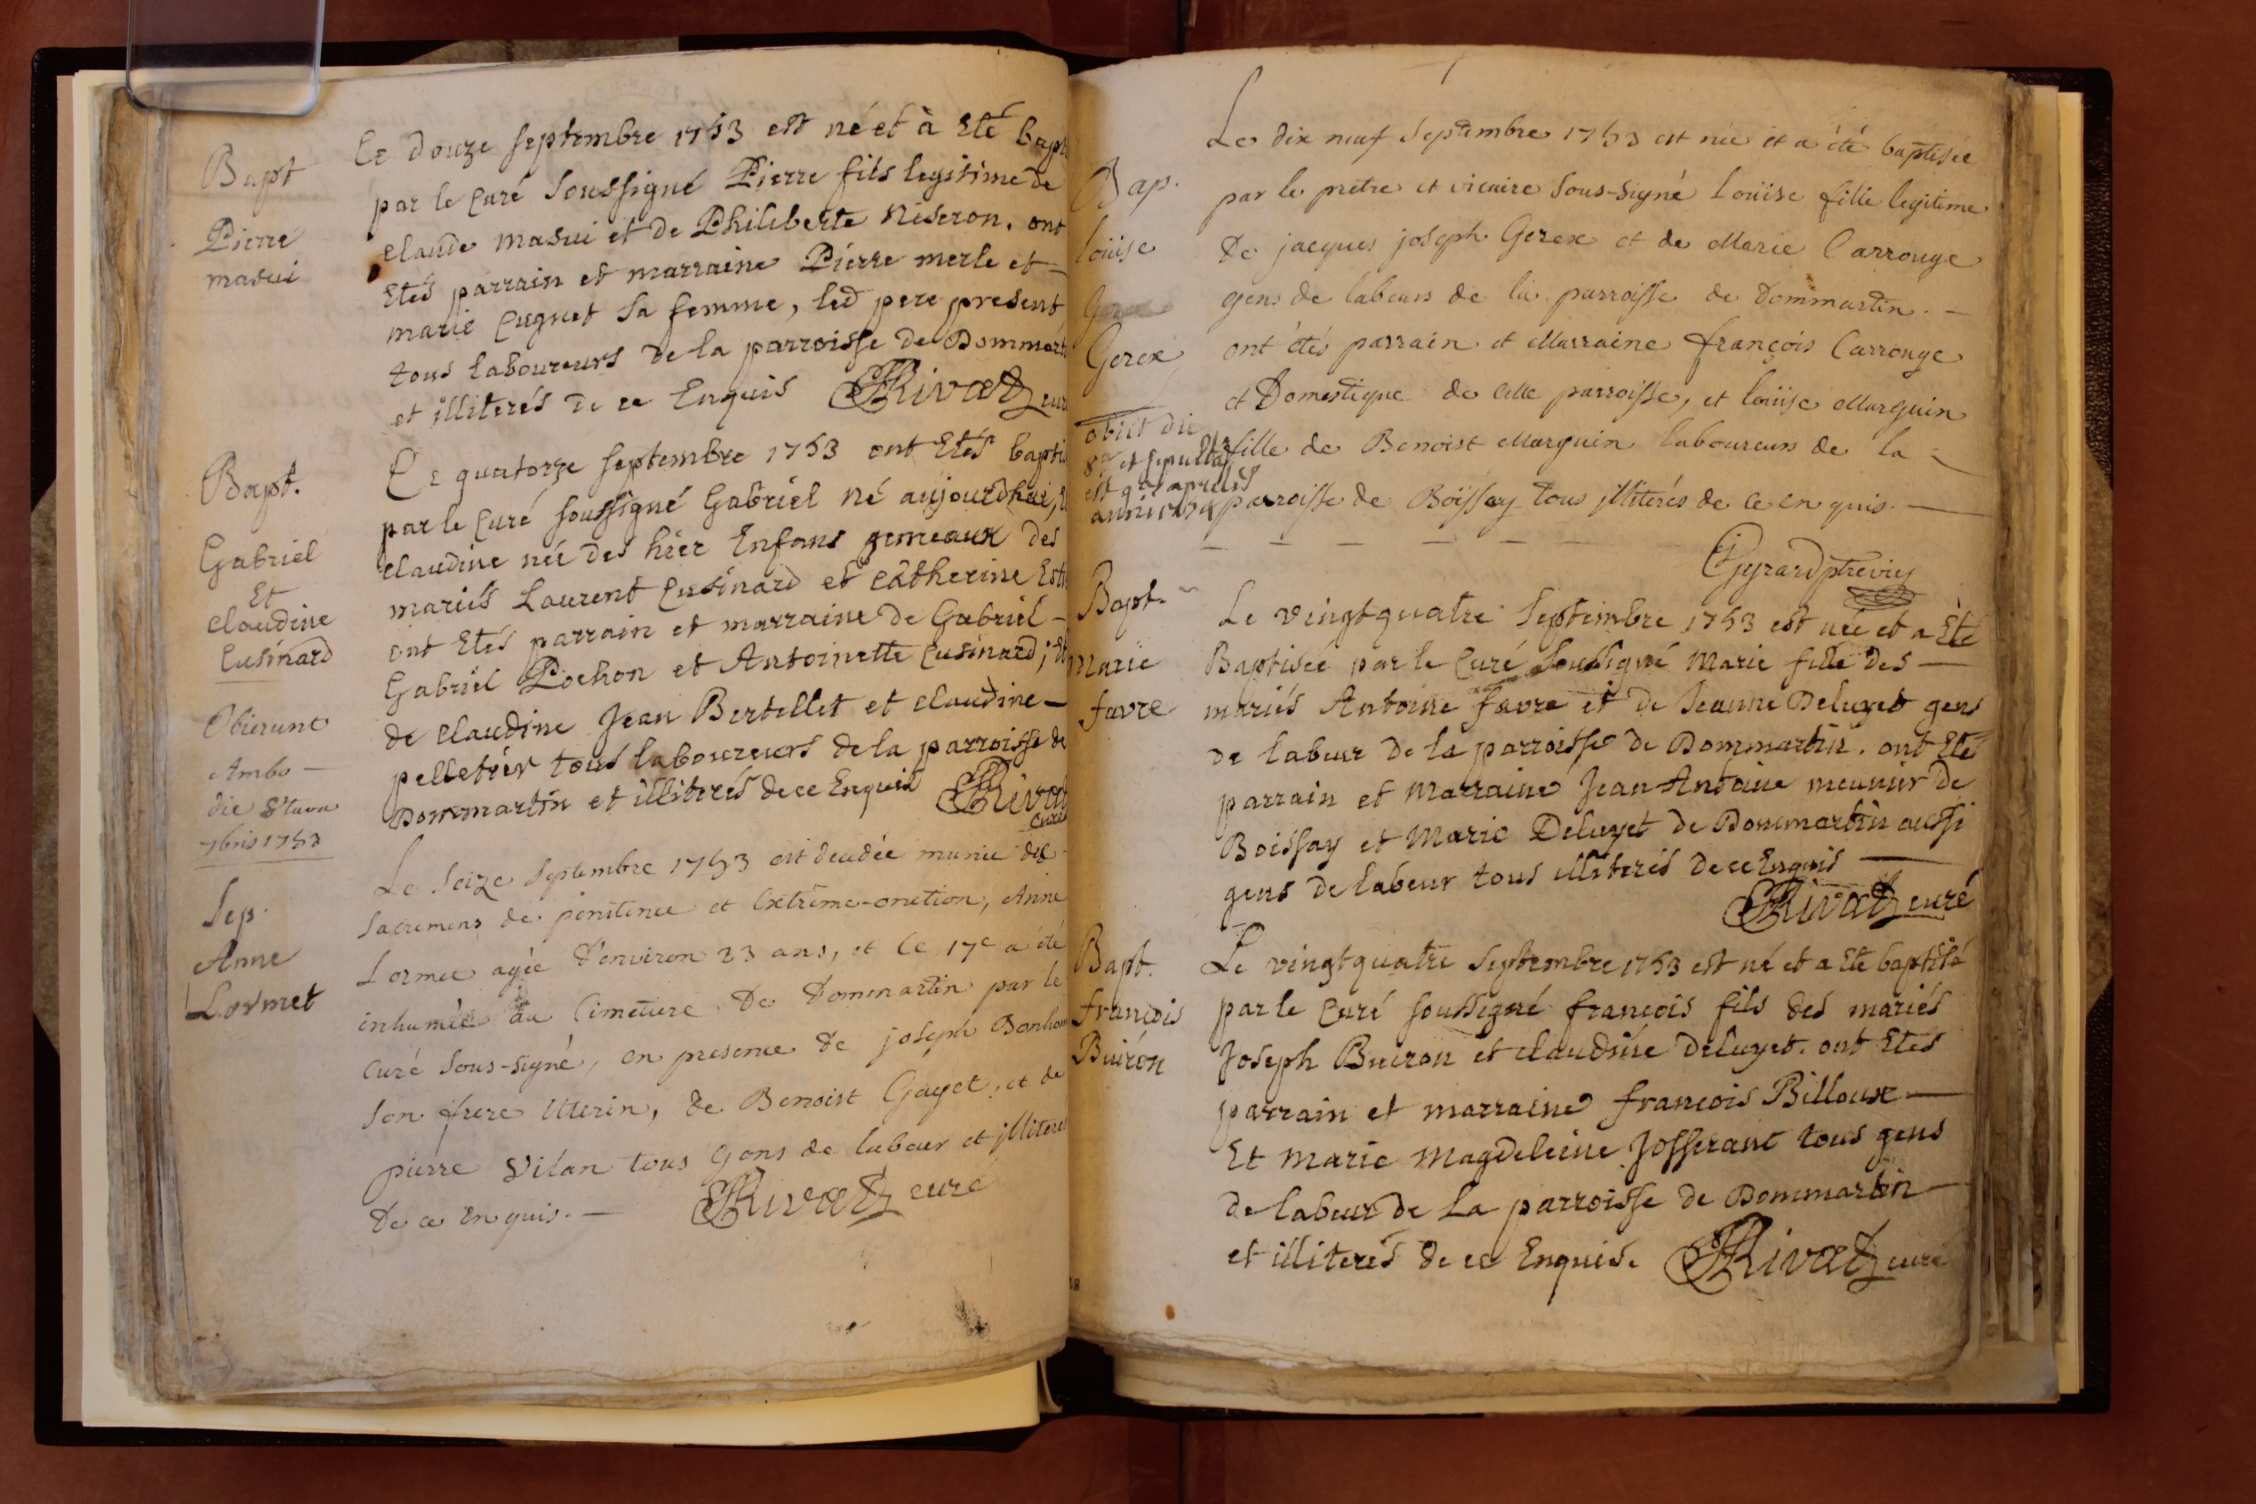 Bapt
Pierre
masui
Le douze septembre 1753 est né et à Eté bapt
par le Curé soussigné Pierre fils legitime de
Claude masui et de Philiberte Niseron. ont
Etés parrain et marraine Pierre merle et
marie Cuguet sa femme, led pere present
tous laboureurs de la parroisse de Dommart
et illiterés de ce Enquis Rivat cur
Bapt.
Gabriel
Et
claudine
Cusinard
Obierunt
Ambo
die
7bris 1753
Le quatorze septembre 1753 ont Etés bapti
par le Curé soussigné Gabriel né aujourdhui, E
claudine née des hier Enfans gemeaux des
mariés Laurent Cusinard et Catherine Est
ont Etés parrain et marraine de Gabriel
Gabriel Pochon et Antoinette Cusinard; Et
de Claudine Jean Bertellet et claudine
pelletier tous laboureurs de la parroisse de
Dommartin et illiterés de ce Enquis Rivat
Curé
Sep.
Anne
Lormet
Le seize septembre 1753 est decedée munie des
sacremens de penitence et Extrême-onction, Anne
Lormee agée d'environ 23 ans, et le 17e a été
inhumée au Cimetiere de Dommartin par le
Curé sous-signé, en presence de joseph Bonhom
son frere Uterin, de Benoist Gayet, et de
pierre Vilan tous Gens de labeur et illiteres
de ce Enquis. Rivat curé
Bap.
Loüise
Gerex
obiit die
et sepulta
est
Le dix neuf Septembre 1753 est née et a été baptisée
par le prêtre et vicaire sous-signé Loüise fille legitime
de jacques joseph Gerex et de Marie Carrouge
gens de labeurs de la parroisse de Dommartin.
ont étés parrain et Marraine françois Carrouge
et Domestique de cette parroisse, et loüise Marguin
fille de Benoist Marguin laboureurs de la
parroisse de Boissey tous illiterés de ce enquis.
Gyrard
Bapt.
Marie
favre
Le vingtquatre Septembre 1753 est née et a Eté
Baptisée par le Curé soussigné Marie fille des
mariés Antoine favre et de Jeanne Deluyet gens
de labeur de la parroisse de Dommartin. ont Eté
parrain et marraine Jean Antoine meunier de
Boissay et Marie Deluyet de Dommartin aussi
gens de labeur tous illiterés de ce Enquis
Rivat curé
Bapt.
françois
Buiron
Le vingtquatre Septembre 1753 est né et a Eté baptisé
par le Curé soussigné françois fils des mariés
Joseph Buiron et claudine Deluyet. ont Etes
parrain et marraine françois Billoux
Et marie magdeleine Josserant tous gens
de labeur de La parroisse de Dommartin
et illiterés de ce Enquis. Rivat curé